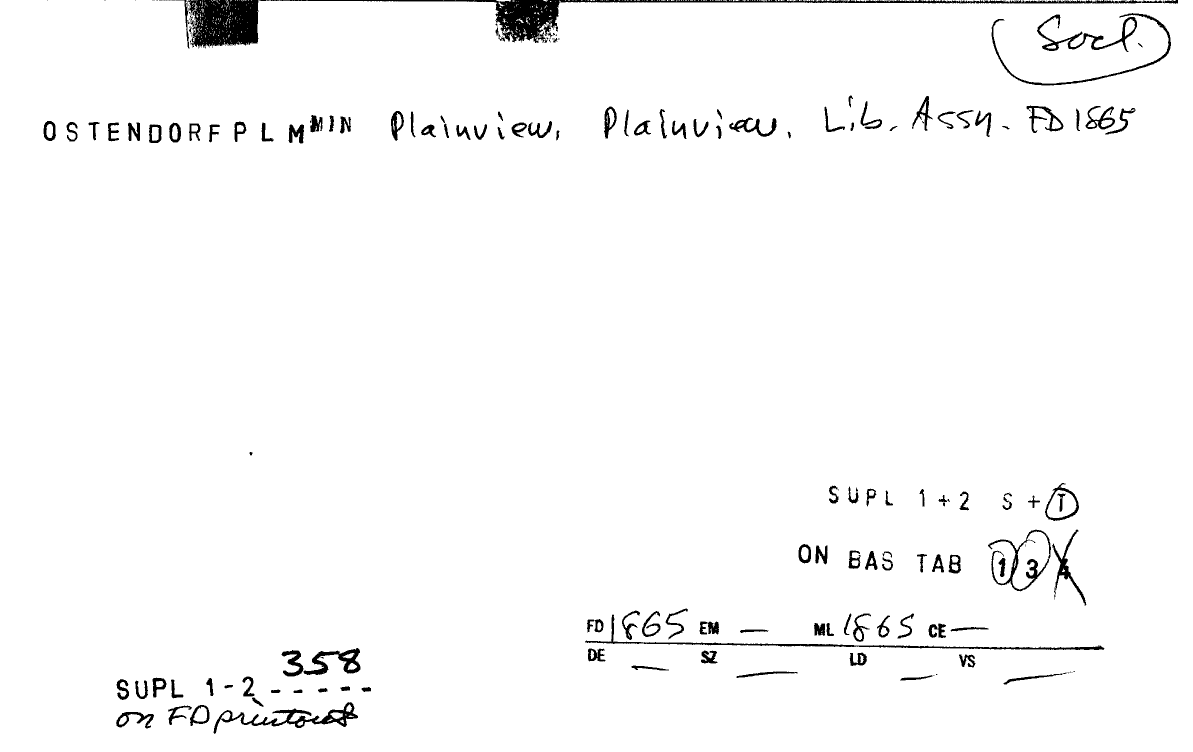 Socl.
OSTENDORFPLM MIN Plainview, Plainview. Lib. Assn. FD 1865
SUPL 1+2 S+T
ON BAS TAB 1 3 4
FD 1865 EM — ML 1865 CE —
DE — SZ — LD — VS —
358
SUPL 1-2 -----
on FD printout